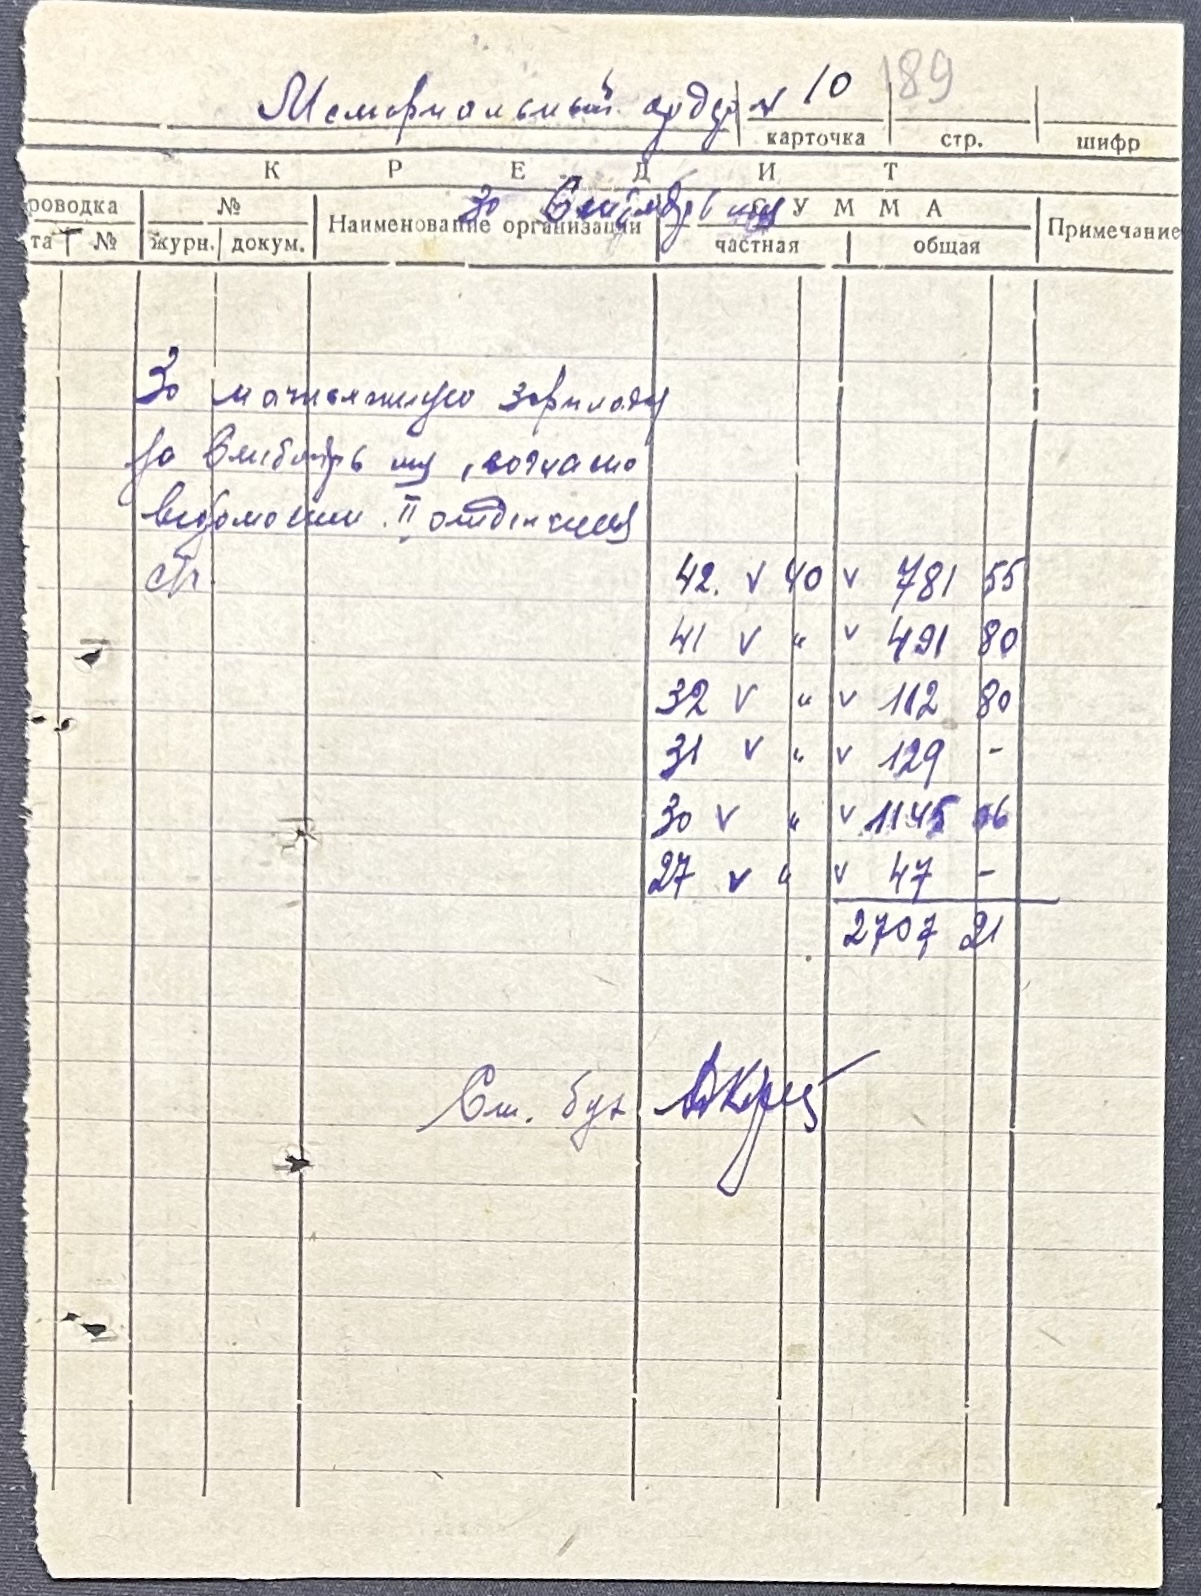 Мемориальный ордер № 10 189
карточка стр. шифр
К Р Е Д И Т
За Сентябрь м-ц
роводка № СУММА
та № журн. докум. Наименование организации частная общая Примечание
За начисленную зарплату
за Сентябрь м-ц, согласно
ведомости II отделения
42. v 40 v 781 55
41 v " v 491 80
32 v " v 112 80
31 v " v 129 -
30 v " v 1145 06
27 v " v 47 -
2707 21
Ст. бух.